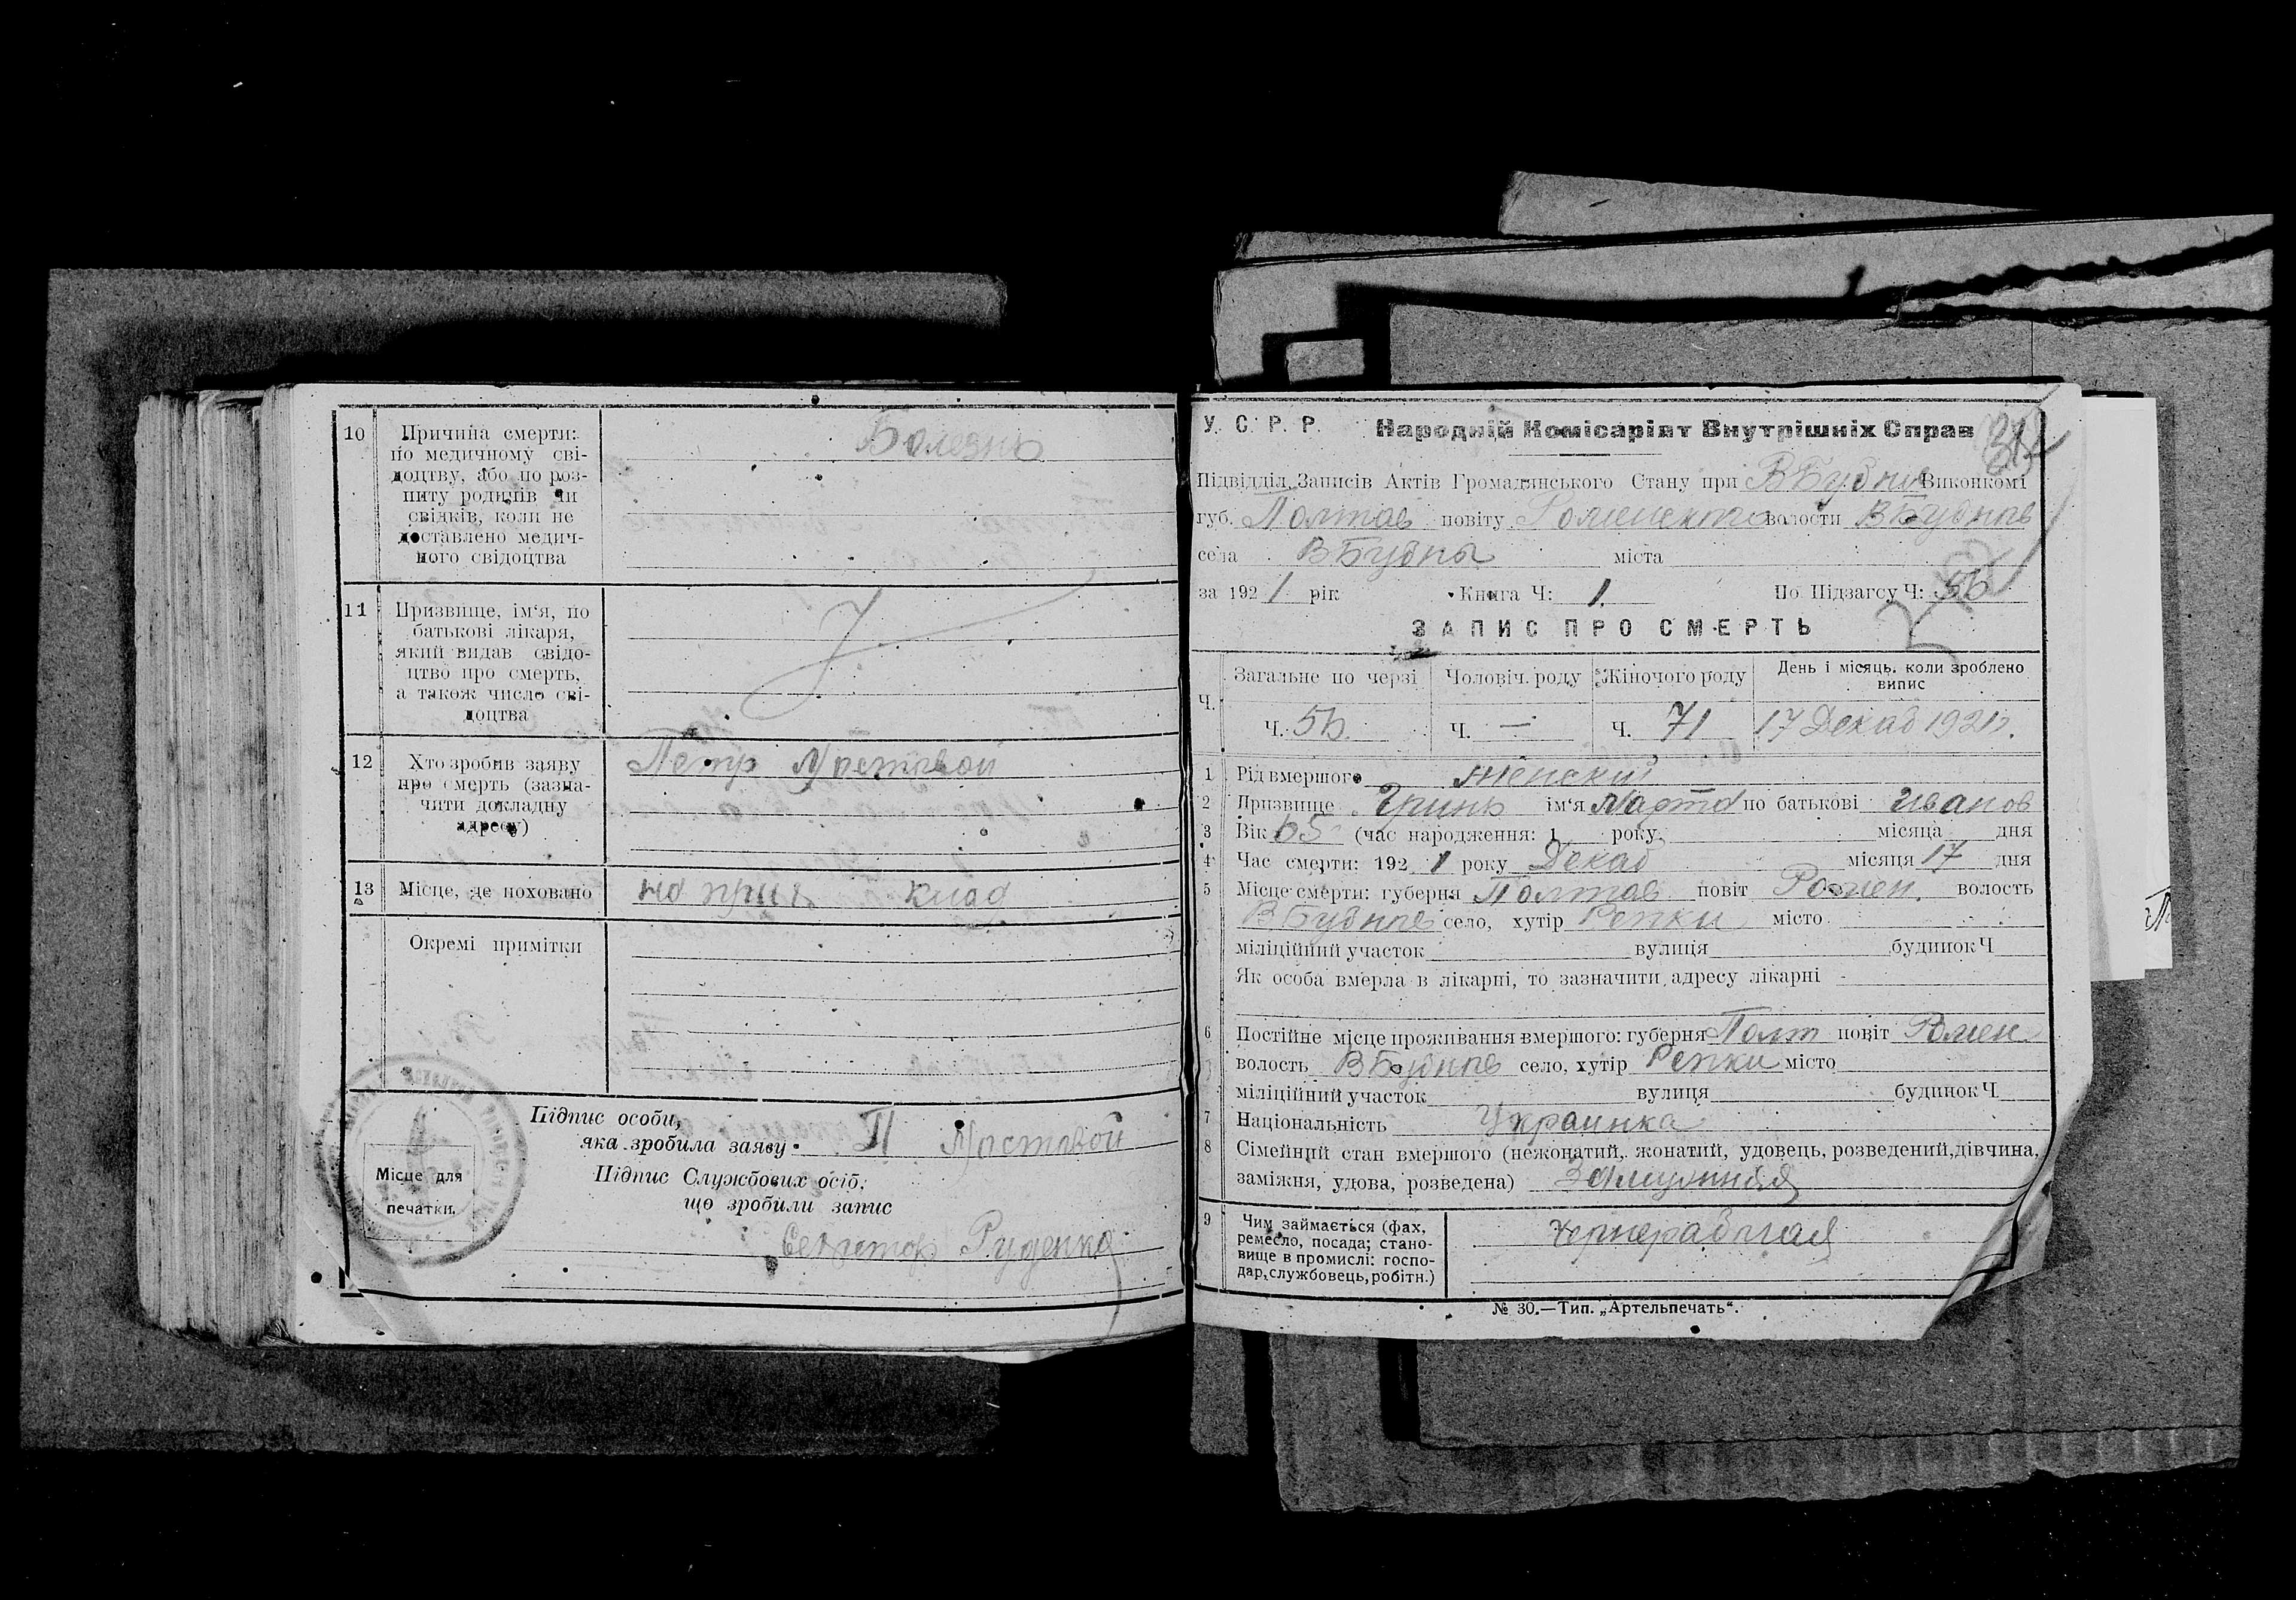 10 Причина смерти: Болезнь
по медичному сві-
доцтву, або по роз-
питу родичів чи
свідків, коли не
доставлено медич-
ного свідоцтва
11 Призвище, ім'я, по
батькові лікаря,
який видав свідо-
цтво про смерть,
а також число сві-
доцтва
12 Хто зробив заяву Петр
про смерть (зазна-
чити докладну
адресу)
13 Місце, де поховано на клад
Окремі примітки
Підпис особи,
яка зробила заяву П
Місце для
печатки.
Підпис Службових осіб,
що зробили запис
Секретар Руденко
У. С. Р. Р. Народній Комісаріят Внутрішніх Справ
Підвідділ Записів Актів Громадянського Стану при ВБудни Виконкомі
губ. Полтав повіту Роменского волости ВБуднов
села ВБудны міста
за 1921 рік Книга Ч: 1. По Підзагсу Ч:
ЗАПИС ПРО СМЕРТЬ
Ч. Загальне по черзі Чоловіч. роду Жіночого роду День і місяць, коли зроблено
випис
Ч. Ч. — Ч. 71 17 Декаб 1921 г.
1 Рід вмершого Женский
2 Призвище Гринь ім'я Марта по батькові Иванов
3 Вік 65 (час народження: 1 року, місяця дня
4 Час смерти: 1921 року Декаб місяця 17 дня
5 Місце смерти: губерня Полтав повіт Ромен. волость
ВБуднов село, хутір Репки місто
міліційний участок вулиця будинок Ч
Як особа вмерла в лікарні, то зазначити адресу лікарні
6 Постійне місце проживання вмершого: губерня Полт повіт Ромен
волость ВБуднов село, хутір Репки місто
міліційний участок вулиця будинок Ч
7 Національність Украинка
8 Сімейний стан вмершого (нежонатий, жонатий, удовець, розведений, дівчина,
заміжня, удова, розведена)
9 Чим займається (фах,
ремесло, посада; стано-
вище в промислі: госпо-
дар, службовець, робітн.)
№ 30.—Тип. „Артельпечать“.